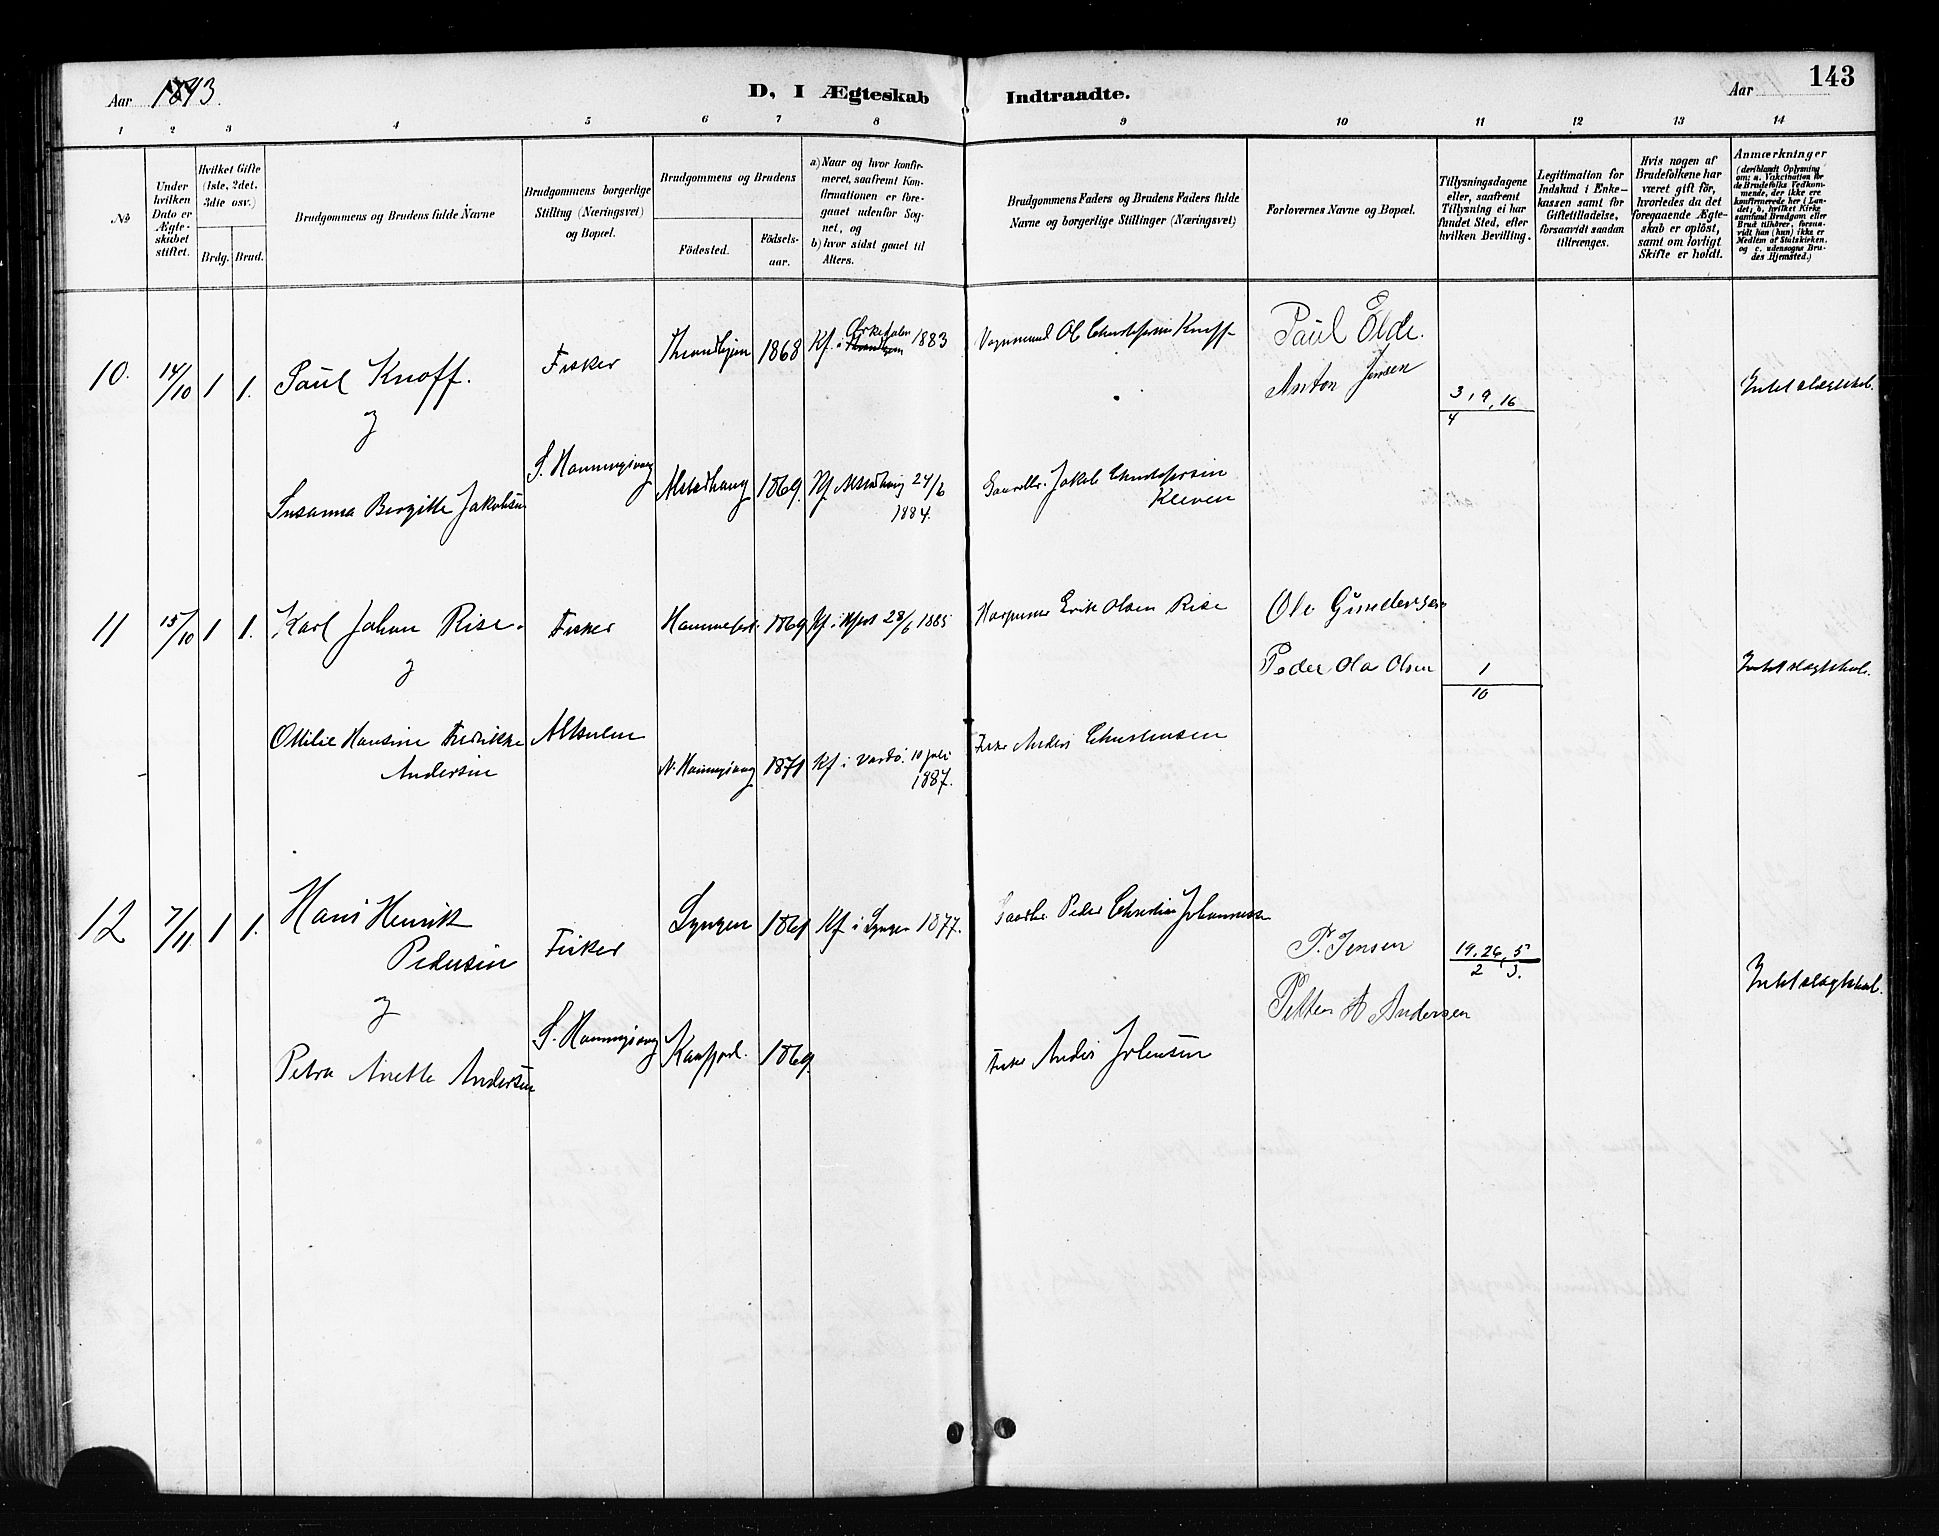 Aar 1893.
D, I Ægteskab Indtraadte.
Aar
143
1 2 3 4 5 6 7 8 9 10 11 12 13 14
No
Under hvilken Dato er Ægteskabet stiftet.
Hvilket Gifte (1ste, 2det, 3die osv.)
Brdg. Brud.
Brudgommens og Brudens fulde Navne
Brudgommens borgerlige Stilling (Næringsvei) og Bopæl.
Brudgommens og Brudens
Födested.
Födselsaar.
a) Naar og hvor konfirmeret, saafremt Konfirmationen er foregaaet udenfor Sognet, og
b) hvor sidst gaaet til Alters.
Brudgommens Faders og Brudens Faders fulde Navne og borgerlige Stillinger (Næringsvei)
Forlovernes Navne og Bopæl.
Tillysningsdagene eller, saafremt Tillysning ei har fundet Sted, efter hvilken Bevilling.
Legitimation for Indskud i Enkekassen samt for Giftetilladelse, forsaavidt saadan tiltrænges.
Hvis nogen af Brudefolkene har været gift för, hvorledes da det foregaaende Ægteskab er oplöst, samt om lovligt Skifte er holdt.
Anmærkninger (deriblandt Oplysning om: a. Vakcination for de Brudefolks Vedkommende, der ikke ere konfirmerede her i Landet; b. hvilket Kirkesamfund Brudgom eller Brud tilhörer, forsaavidt han (hun) ikke er Medlem af Statskirken, og c. udensogns Brudes Hjemsted.)
10. 14/10 1 1. Paul Knoff. Fisker Throndhjem 1868 Kf. i 1883
Ol Knoff
Paul Elde.
Anton Jensen
3, 9, 16/4
Intet slægtskab.
og
Susanna Bergitte Jakobsen S. Honningsvaag Alstadhaug 1869. Kf Alstadhaug 24/6 1884.
Jakob Christofersen Kleven
11 15/10 1 1. Karl Johan Rise. Fisker Hammerfest. 1869 Kf. i Hfest 28/6 1885
Erik Olsen Rise
Ole Gundersen
Peder Ola Olsen
1/10
Intet slægtskab.
og
Ottilie Hansine Fredrikke Andersen
N. Honningsvaag 1871 Kf. i Vardö. 10 juli 1887.
Anders Christensen
12 7/11 1 1. Hans Henrik Pedersen Fisker Lyngen 1861 Kf i Lyngen 1877.
Peder Christian Johannessen
P. Jensen
Petter A Andersen
19, 26, 5/2 3.
Intet slægtskab.
og
Petra Anette Andersen S. Honningsvaag Kaafjord. 1869.
Anders